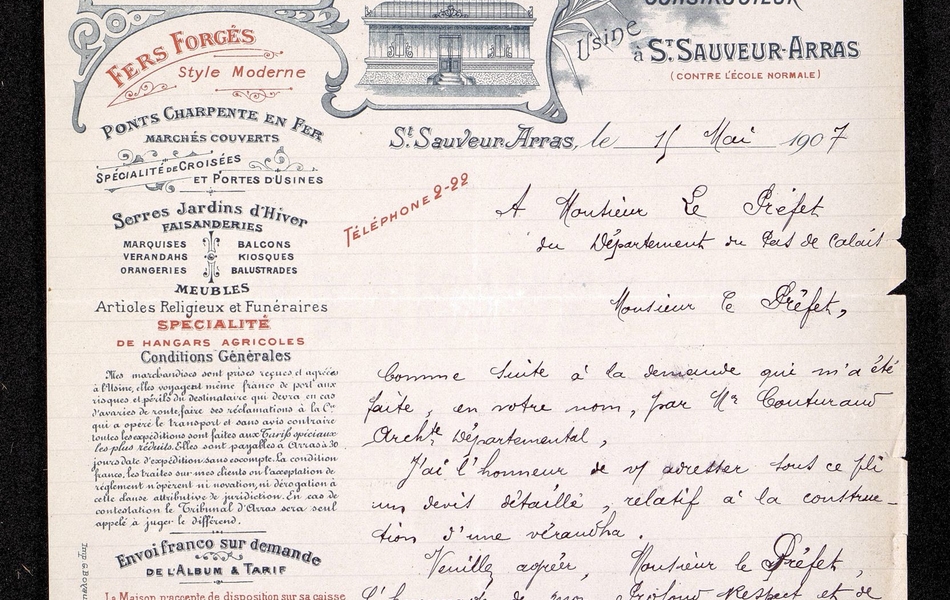 CONSTRUCTEUR
Usine
à ST SAUVEUR-ARRAS
(CONTRE L'ÉCOLE NORMALE)
FERS FORGÉS
Style Moderne
PONTS CHARPENTE EN FER
MARCHÉS COUVERTS
SPÉCIALITÉ DE CROISÉES
ET PORTES D'USINES
Serres Jardins d'Hiver
FAISANDERIES
MARQUISES BALCONS
VERANDAHS KIOSQUES
ORANGERIES BALUSTRADES
MEUBLES
Articles Religieux et Funéraires
SPÉCIALITÉ
DE HANGARS AGRICOLES
Conditions Générales
Mes marchandises sont prises reçues et agréées
à l'Usine, elles voyagent même franco de port aux
risques et périls du destinataire qui devra en cas
d'avaries de route, faire ses réclamations à la Cie
qui a opéré le transport et sans avis contraire
toutes les expéditions sont faites aux Tarifs spéciaux
les plus réduits. Elles sont payables à Arras à 30
jours date d'expédition sans escompte. La condition
franco, les traites sur mes clients ou l'acceptation de
réglement n'opèrent ni novation, ni dérogation à
cette clause attributive de juridiction. En cas de
contestation le Tribunal d'Arras sera seul
appelé à juger le différend.
Envoi franco sur demande
DE L'ALBUM & TARIF
La Maison n'accepte de disposition sur sa caisse
Imp. G. Boyer
St Sauveur-Arras, le 15 Mai 1907
TÉLÉPHONE 2-22
A Monsieur Le Préfet
du Département du Pas de Calais
Monsieur le Préfet,
Comme suite à la demande qui m'a été
faite, en votre nom, par Mr Couturaud
Archte Départemental,
J'ai l'honneur de vs adresser sous ce pli
un devis détaillé, relatif à la construc-
tion d'une vérandha.
Veuillez agréer, Monsieur le Préfet,
l'hommage de mon Profond Respect et de